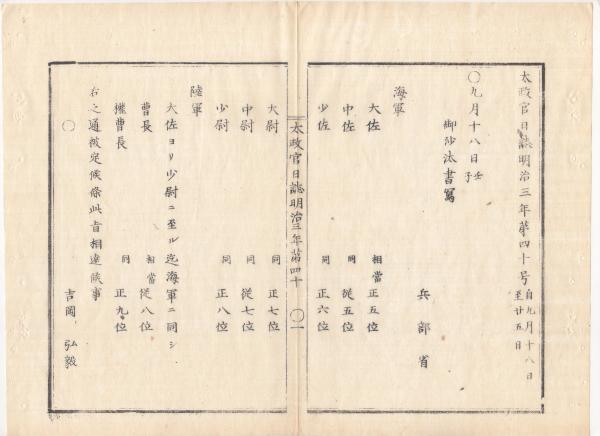 太政官日誌明治三年第四十号 自九月十八日 至廿五日
〇九月十八日 壬子
御沙汰書寫
兵部省
海軍
大佐 相當 正五位
中佐 同 從五位
少佐 同 正六位
太政官日誌明治三年第四十 〇一
大尉 同 正七位
中尉 同 從七位
少尉 同 正八位
陸軍
大佐ヨリ少尉ニ至ル迄海軍ニ同シ
曹長 相當 從八位
權曹長 同 正九位
右之通被定候條此旨相達候事
〇
吉岡 弘毅